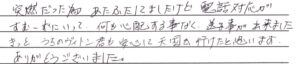 突然だった為 あたふたしてましたけど 電話対応が
すむーずにいって、何も心配する事なく 送る事が出来ました
きっと うちのヴィトン君も 安心して 天国に行けたと思います。
ありがとうございました。